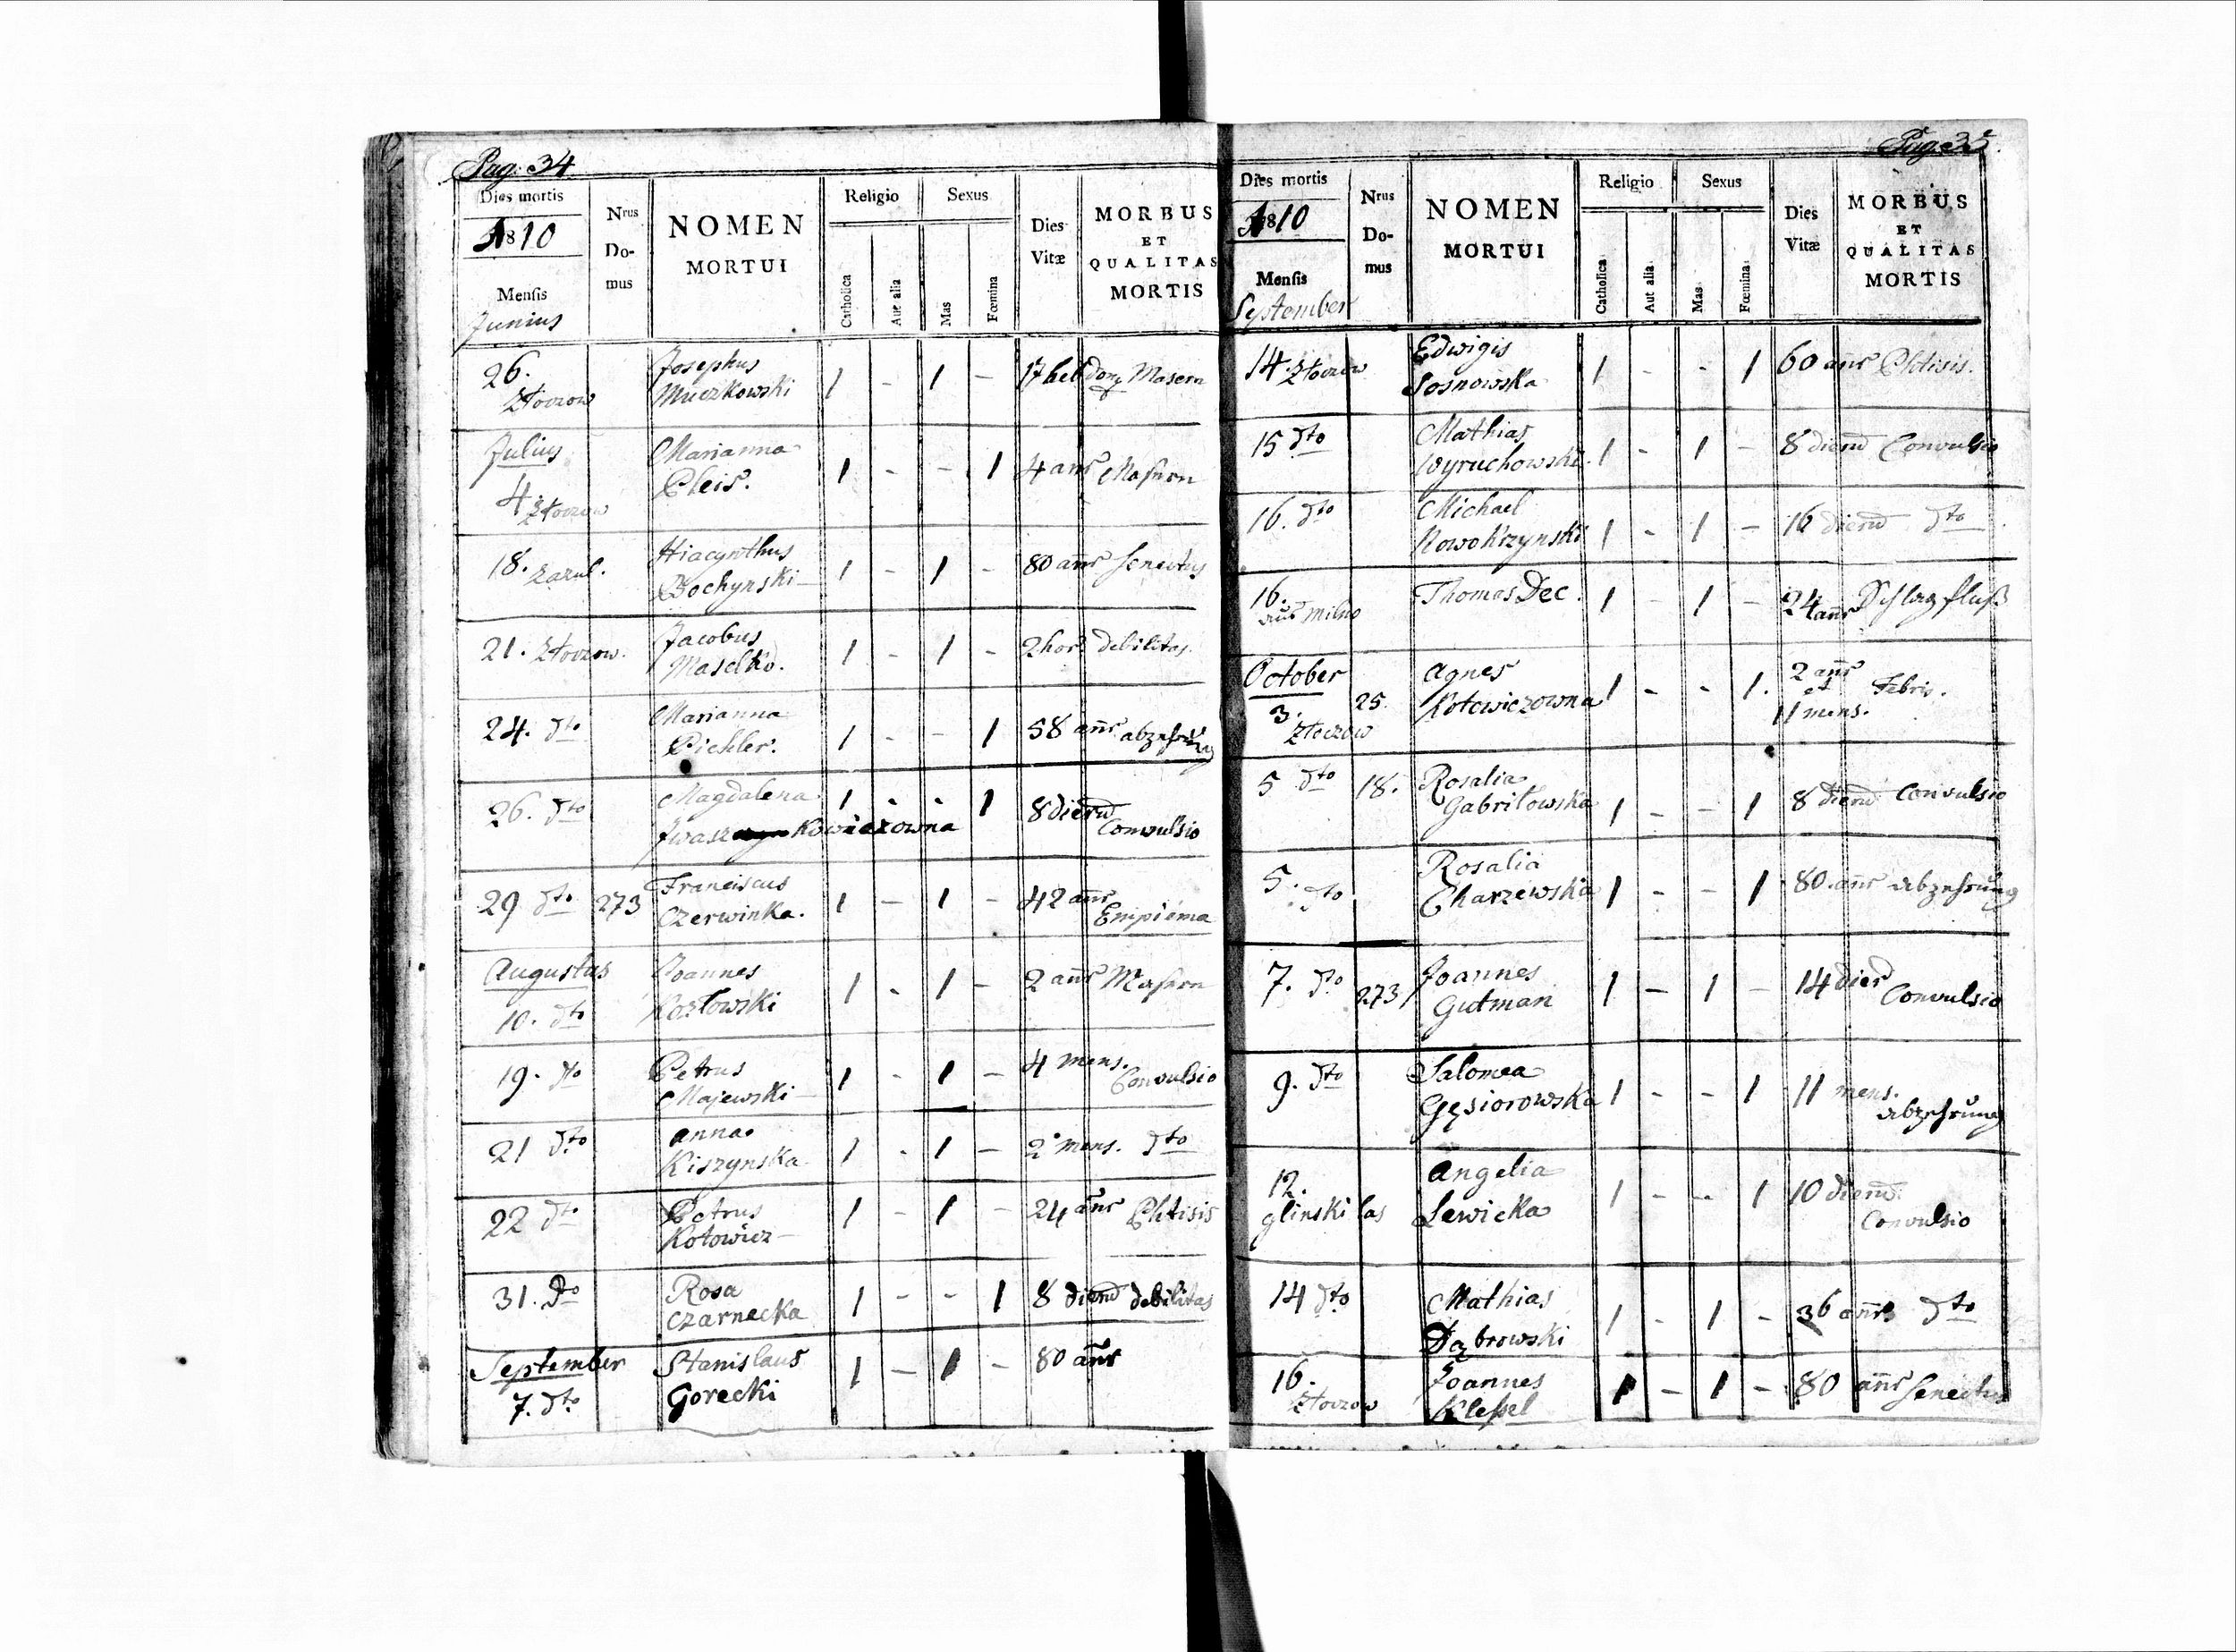 Pag. 34
Dies mortis
1810
Mensis
Junius
Nrus
Do-
mus
NOMEN
MORTUI
Religio
Catholica
Aut alia
Sexus
Mas
Fœmina
Dies
Vitæ
MORBUS
ET
QUALITAS
MORTIS
26. Josephus
Złoczow Muczkowski 1 - 1 - 17 hebdom Masern
Julius Marianna
4 Złoczow Pleis. 1 - - 1 4 anñ Masern
18. Zazul. Hiacynthus
Bochynski 1 - 1 - 80 anñ Senectus
21. Złoczow. Jacobus
Maselko. 1 - 1 - 2 hor. debilitas.
24. dto Marianna
Pichler. 1 - - 1 58 anñ abzehrung
26. dto Magdalena 1 - - 1 8 dierum
Jwasz Kowiczowna Convulsio
29 dto 273 Franciscus
Czerwinka. 1 - 1 - 42 anñ Empiema
Augustus Joannes
10. dto Kozłowski 1 - 1 - 2 anñ Masern
19. dto Petrus
Majewski 1 - 1 - 4 mens. Convulsio
21 dto Anna
Kiszynska 1 - 1 - 2 mens. dto
22 dto Petrus
Kotowicz 1 - 1 - 24 anñ Phtisis
31. dto Rosa
Czarnecka 1 - - 1 8 dierum debilitas
September Stanislaus
7. dto Gorecki 1 - 1 - 80 anñ
Pag. 35.
Dies mortis
1810
Mensis
September
Nrus
Do-
mus
NOMEN
MORTUI
Religio
Catholica
Aut alia
Sexus
Mas
Fœmina
Dies
Vitæ
MORBUS
ET
QUALITAS
MORTIS
14. Złoczow Edwigis
Sosnowska 1 - - 1 60 anñ Phtisis.
15 dto Mathias
Wyruchowski. 1 - 1 - 8 dierum Convulsio
16. dto Michael
Nowokrzynski 1 - 1 - 16 dierum dto
16. aus Milno Thomas Dec. 1 - 1 - 24 anñ Schlagfluß
October Agnes
3. Złoczow 25. Kotowiczowna 1 - - 1. 2 anñ et 11 mens. Febris.
5 dto 18. Rosalia
Gabriłowska 1 - - 1 8 dierum Convulsio
5. dto Rosalia
Charzewska 1 - - 1 80 anñ abzehrung
7. dto 273 Joannes
Gutman 1 - 1 - 14 dier Convulsio
9. dto Salomea
Gęsiorowska 1 - - 1 11 mens. abzehrung
12. Angelia
glinski las Lewicka 1 - - 1 10 dierum Convulsio
14 dto Mathias
Dąbrowski 1 - 1 - 36 anñ dto
16. Joannes
Złoczow Klessel 1 - 1 - 80 anñ Senectus